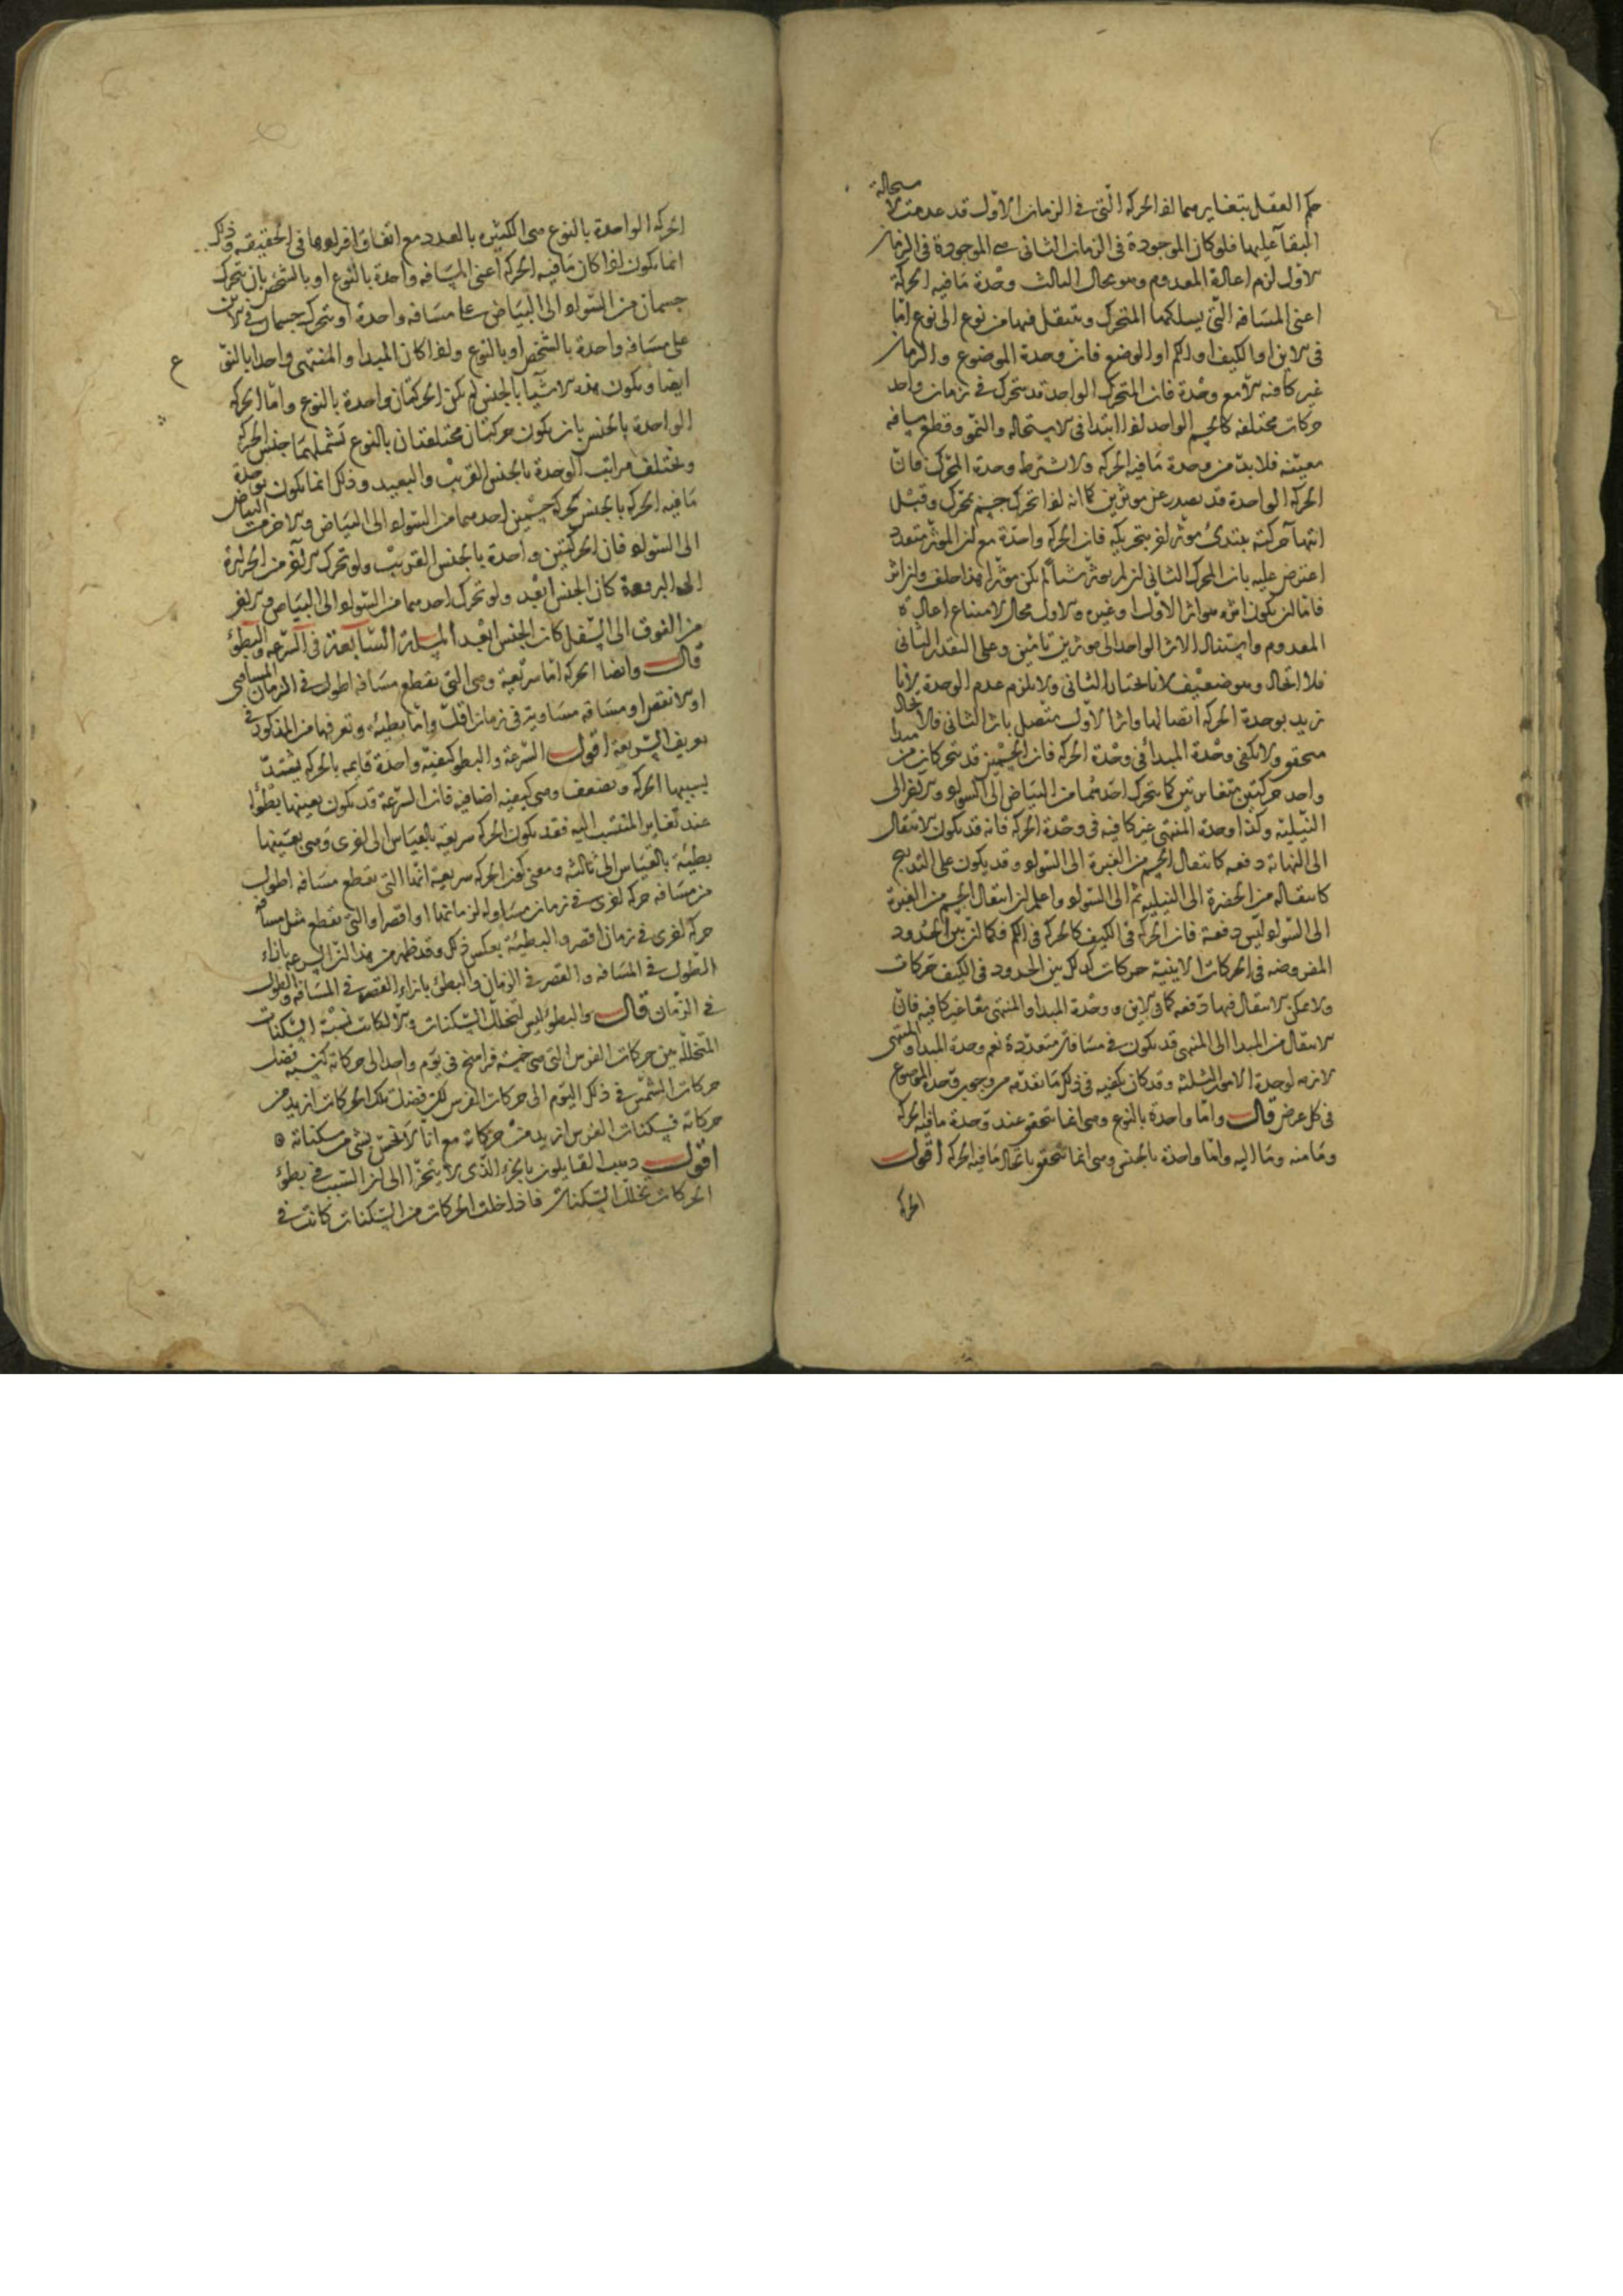 حكم العقل بتغايرهما لان الحركة التى فى الزمان الاول قد عدمت لاستحالة
البقاء عليها فلو كان الموجودة فى الزمان الثانى هى الموجودة فى الزمان
الاول لزم اعادة المعدوم وهو محال الثالث وحدة ما فيه الحركة
اعنى المسافة التى يسلكها المتحرك وينتقل فيها من نوع الى نوع اما
فى الاين او الكيف او الكم او الوضع فان وحدة الموضوع والزمان
غير كافية الا مع وحدة فان المتحرك الواحد قد يتحرك فى زمان واحد
حركات مختلفة كالجسم الواحد اذا ابتدا فى الاستحالة والنمو وقطع مسافة
معينة فلا بد من وحدة ما فيه الحركة ولا يشترط وحدة المحرك فان
الحركة الواحدة قد تصدر عن موثرين كما انه لو تحرك جسم بمحرك وقبل
انتهاء حركته يبتدئ موثر اخر بتحريكه فان الحركة واحدة مع ان الموثر متعدد
اعترض عليه بان المحرك الثانى ان لم يوثر شيئا لم يكن موثرا هذا خلف وان اثر
فاما ان يكون اثره هو اثر الاول او غيره والاول محال لامتناع اعادة
المعدوم واستناد الاثر الواحد الى موثرين تامين وعلى التقدير الثانى
فلا اتحاد وهو ضعيف لانا نختار الثانى ولا يلزم عدم الوحدة لانا
نريد بوحدة الحركة اتصالها واثر الاول متصل باثر الثانى فالاتحاد
متحقق ولا تكفى وحدة المبدأ فى وحدة الحركة فان الجسمين قد يتحركان من مبدا
واحد حركتين متغايرتين كما يتحرك احدهما من البياض الى السواد والاخر الى
النيلية وكذا وحدة المنتهى غير كافية فى وحدة الحركة فانه قد يكون الانتقال
الى النهاية دفعة كانتقال الجسم من الغبرة الى السواد وقد يكون على التدريج
كانتقاله من الخضرة الى النيلية ثم الى السواد واعلم ان انتقال الجسم من الغبرة
الى السواد ليس دفعة فان الحركة فى الكيف كالحركة فى الكم فكما ان بين الحدود
المفروضة فى الحركات الاينية حركات كذلك بين الحدود فى الكيف حركات
ولا يمكن الانتقال فيها دفعة كما فى الاين ووحدة المبدا والمنتهى معا غير كافية فان
الانتقال من المبدا الى المنتهى قد يكون فى مسافات متعددة نعم وحدة المبدا والمنتهى
لازمة لوحدة الامور الثلثة وقد كان يكفيه فى ذلك ما تقدم من وجوب وحدة الموضوع
فى كل عرض قال واما واحدة بالنوع وهى انما تتحقق عند وحدة ما فيه الحركة
وما منه وما اليه واما واحدة بالجنس وهى انما تتحقق باتحاد ما فيه الحركة اقول
الحركة
الحركة الواحدة بالنوع هى الكثيرة بالعدد مع اتفاق افرادها فى الحقيقة وذلك
انما يكون اذا كان ما فيه الحركة اعنى المسافة واحدة بالنوع او بالشخص بان يتحرك
جسمان من السواد الى البياض على مسافة واحدة او يتحرك جسمان فى الاين
على مسافة واحدة بالشخص او بالنوع واذا كان المبدا والمنتهى واحدا بالنوع
ايضا وتكون هذه الاشيا بالجنس لم تكن الحركتان واحدة بالنوع واما الحركة
الواحدة بالجنس بان يكون حركتان مختلفتان بالنوع تشملهما جنس الحركة
وتختلف مراتب الوحدة بالجنس القريب والبعيد وذلك انما يكون بوحدة
ما فيه الحركة بالجنس كحركة جسمين احدهما من السواد الى البياض والاخر من البياض
الى السواد فان الحركتين واحدة بالجنس القريب ولو تحرك الاخر من الحرارة
الى البرودة كان الجنس ابعد ولو تحرك احدهما من السواد الى البياض والاخر
من الفوق الى السفل كان الجنس ابعد المسئلة السابعة فى السرعة والبطؤ
قال وايضا الحركة اما سريعة وهى التى تقطع مسافة اطول فى الزمان المساوى
او الانقص او مسافة مساوية فى زمان اقل واما بطيئة وتعرفها من المذكور فى
تعريف السريعة اقول السرعة والبطو كيفية واحدة قايمة بالحركة يشتد
بسببها الحركة وتضعف وهى كيفية اضافية فان السرعة قد تكون بعينها بطؤا
عند تغاير المنتسب اليه فقد تكون الحركة سريعة بالقياس الى اخرى وهى بعينها
بطيئة بالقياس الى ثالثة ومعنى كون الحركة سريعة انها التى تقطع مسافة اطول
من مسافة حركة اخرى فى زمان مساو لزمانها او اقصر او التى تقطع مثل مسافة
حركة اخرى فى زمان اقصر والبطيئة بعكس ذلك وقد ظهر من هذا ان السرعة بازاء
الطول فى المسافة والقصر فى الزمان والبطؤ بازاء القصر فى المسافة والطول
فى الزمان قال والبطؤ ليس لتخلل السكنات والا لكانت نسبة السكنات
المتخللة بين حركات الفرس التى هى خمسة فراسخ فى يوم واحد الى حركاته كنسبة فضل
حركات الشمس فى ذلك اليوم الى حركات الفرس لكن فضل تلك الحركات ازيد من
حركاته فسكنات الفرس ازيد من حركاته مع انا لا نحس بشى من سكناته
اقول ذهب القايلون بالجزء الذى لا يتجزا الى ان السبب فى بطؤ
الحركات تخلل السكنات فاذا خلت الحركات من السكنات كانت فى